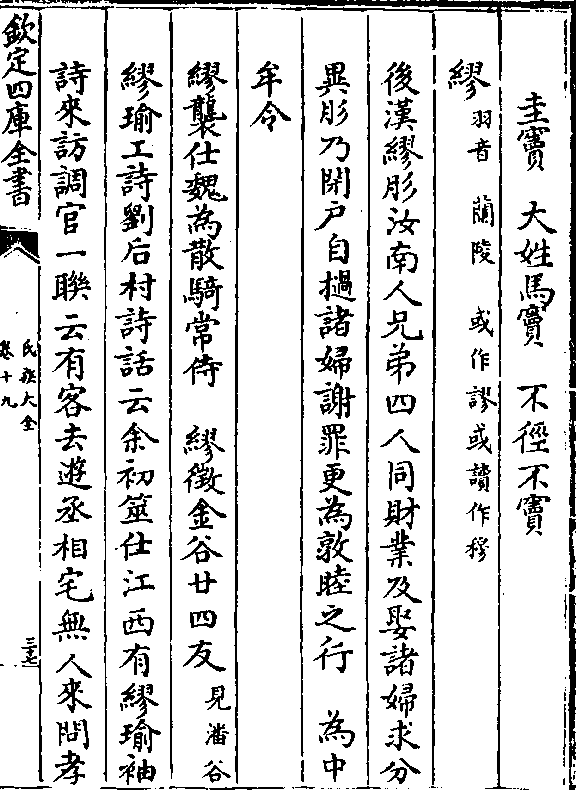 圭竇　大姓馬竇　不徑不竇
繆羽音　蘭陵　或作謬或讀作穆
後漢繆肜汝南人兄弟四人同財業及娶諸婦求分
異肜乃閉戸自撾諸婦謝罪更為敦睦之行　為中
牟令
繆襲仕魏為散騎常侍　繆徵金谷廿四友見潘谷
繆瑜工詩劉后村詩話云余初筮仕江西有繆瑜袖
詩來訪調官一聯云有客去遊丞相宅無人來問孝
欽定四庫全書
氏族大全
卷十九
三十七